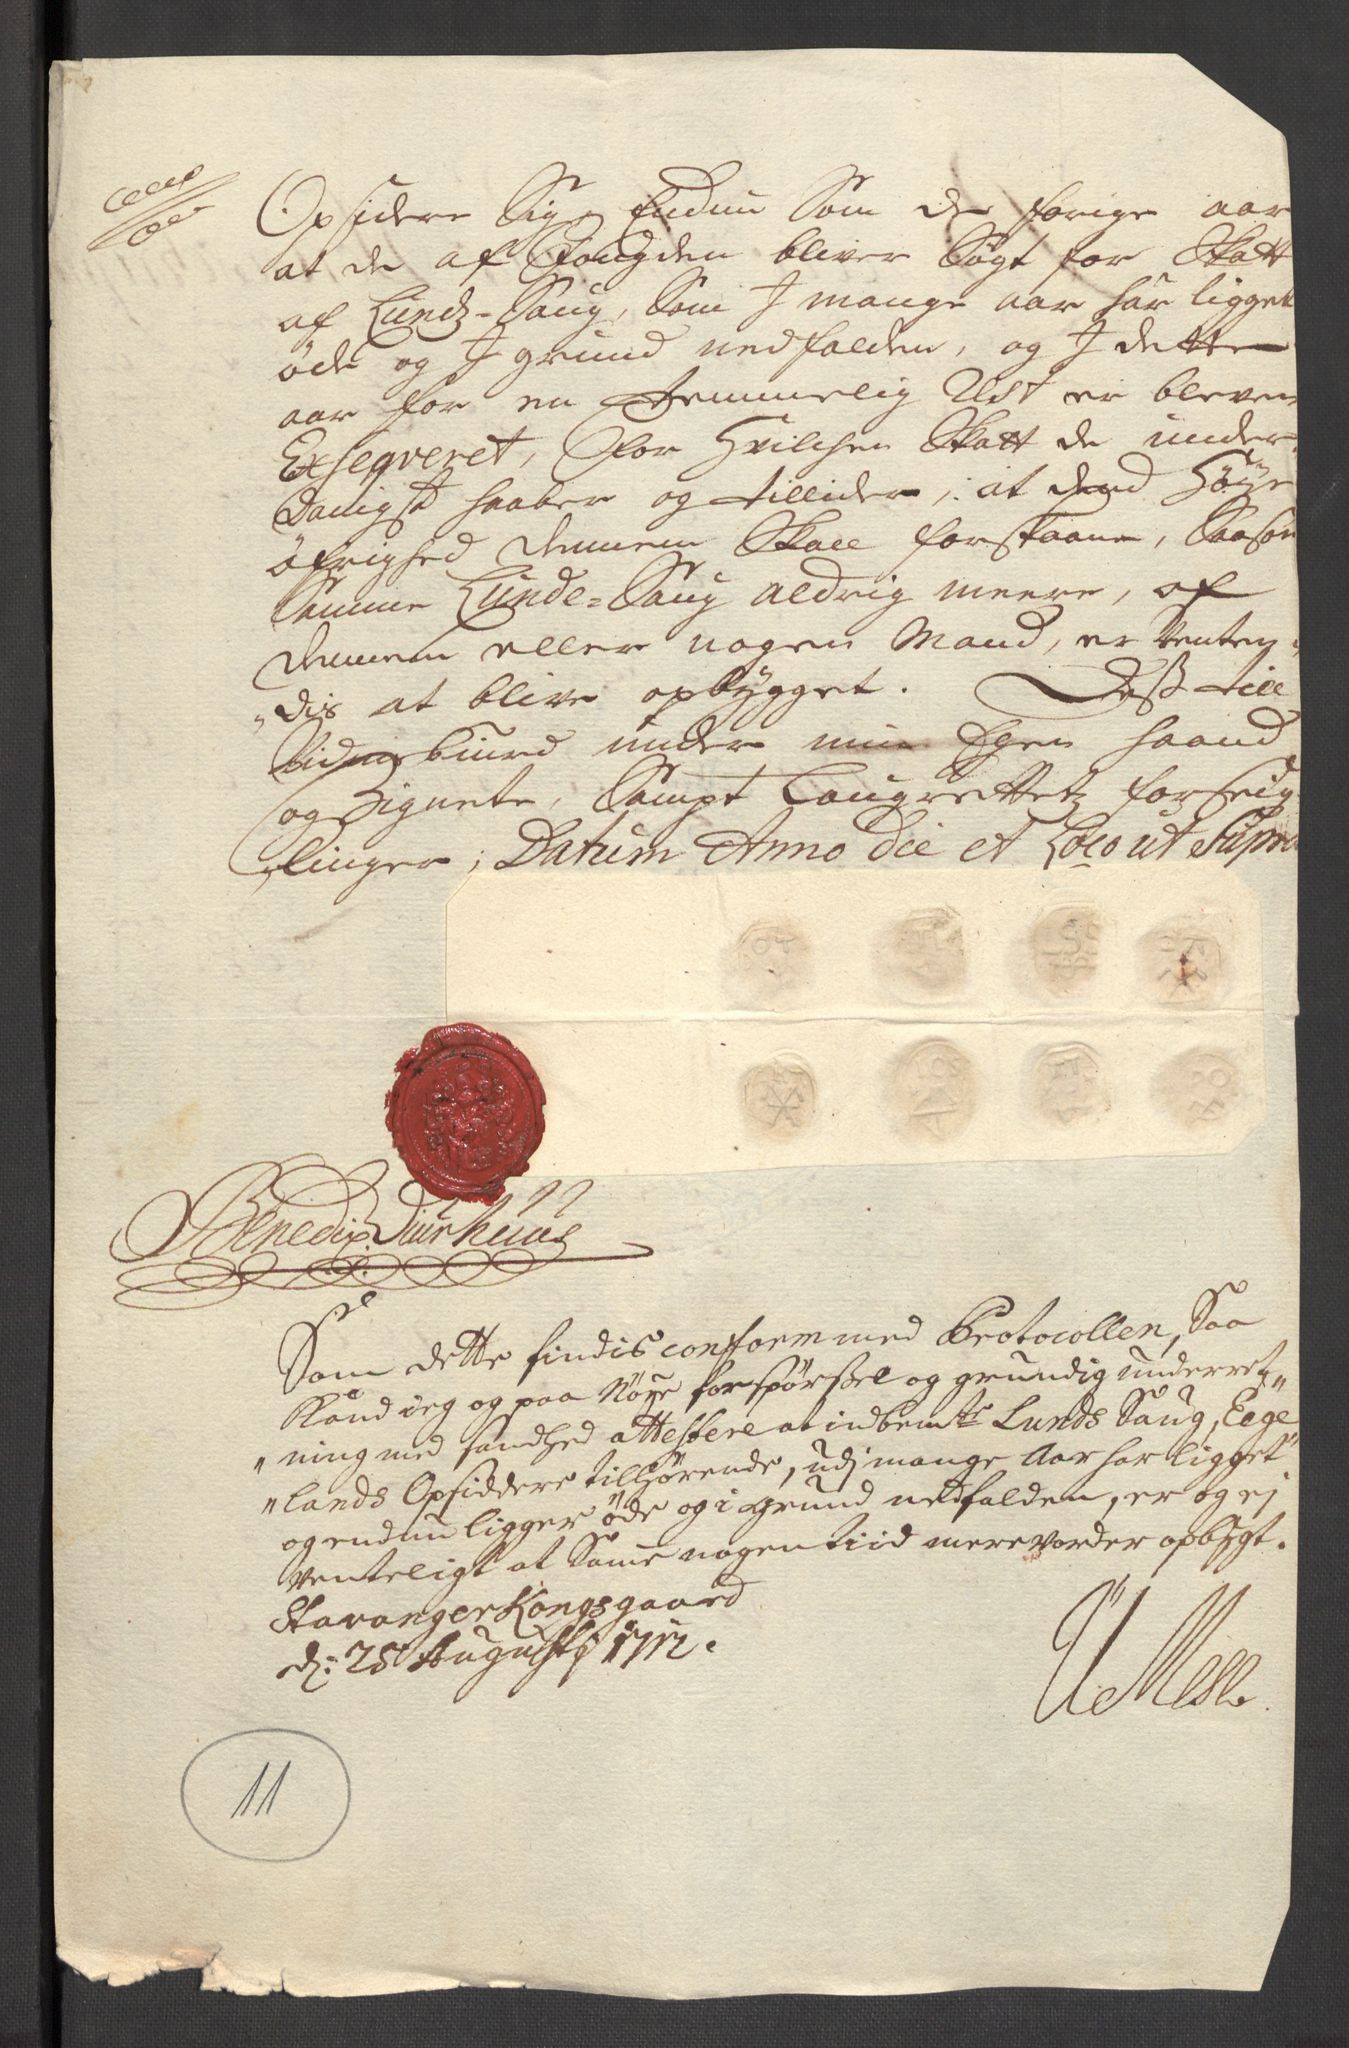 Opsidere Sig, Endnu Som de forige aar
at de af Fougden bliver Søgt for Skatt
af Lunds-Saug, Som J mange aar har ligget
øde og J grund nedfalden, og J dette
aar for en temmelig Rest er bleven
Exseqveret, for Hvilchen Skatt de under-
danigst haaber og tillider, at dend Høye
øfrighed dennem Skall forskaane, Saasom
Samme Lunde-Saug aldrig meere, af
dennem eller nogen Mand, er Venten„
„dis at blive opbygget. Deß till
Vidnisbiurd under min Egen haand
og Signete, Sampt Laugrettetz forseig„
„linger, Datum Anno die et Loco ut Supra
Benedix Diurhuus
Som dette findis conform med Protocollen, Saa
Kand ieg og paa Nøye forspørsel og grundig underret„
„ning med sandhed attestere at indbemte Lunds Saug, Ege„
„lands Opsiddere tillhørende, udj mange Aar har ligget
og endnu ligger øde og i grund nedfalden, er og ej
venteligt at Same nogen tiid mere vorder opbygt.
Stavanger Kongsgaard
d: 25 Augustj 1712.
11